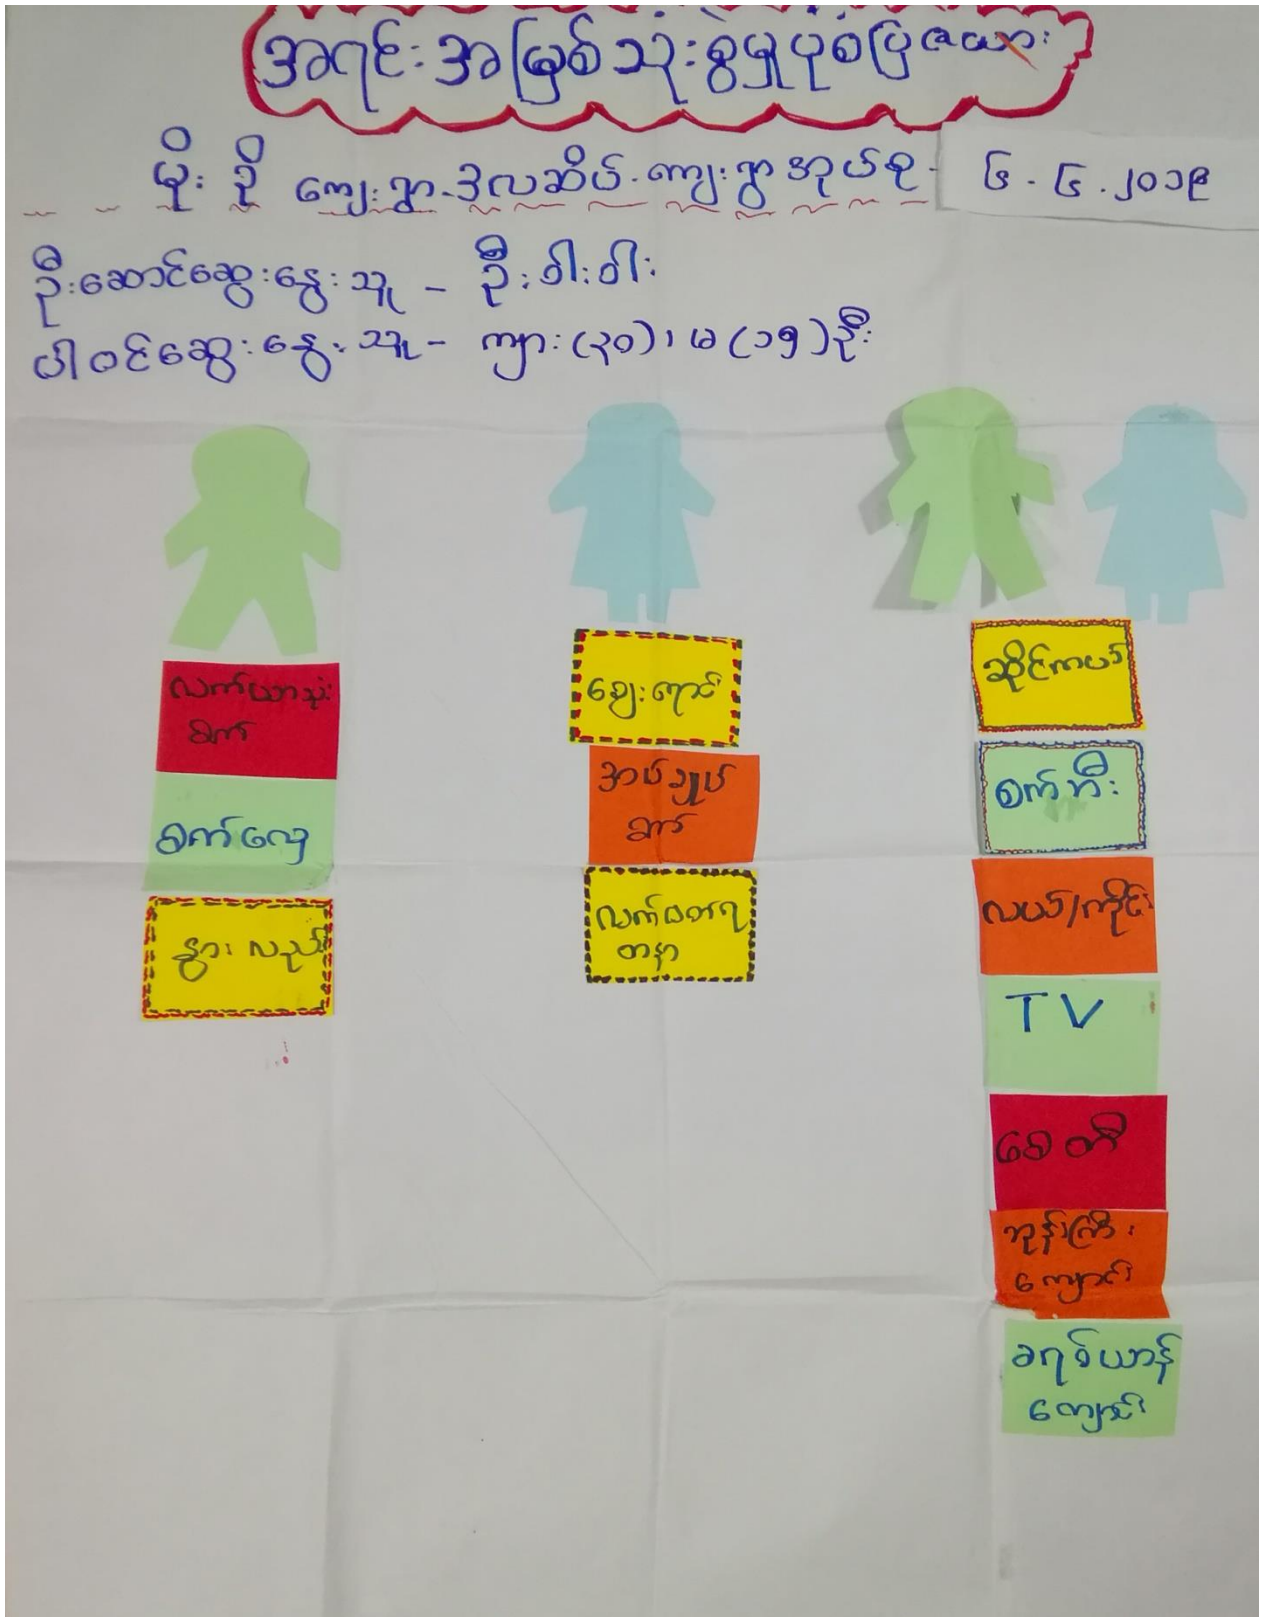 အရင်းအမြစ်သုံးစွဲမှုပုံစံပြဇယား
မိုးဒို ကျေးရွာ-ဒူလဆိပ်-ကျေးရွာအုပ်စု- ၆.၆.၂၀၁၉
ဦးဆောင်ဆွေးနွေးသူ - ဦးဝါးဝါး
ပါဝင်ဆွေးနွေးသူ - ကျား(၃၀)၊ မ(၁၅)ဦး
လက်ယာသုံး
စက်
စက်လှေ
နွားလှည်း
ဈေးရောင်း
အပ်ချုပ်
စက်
လက်ဝတ်ရ
တနာ
ဆိုင်ကယ်
စက်ဘီး
လယ်/ကိုင်း
TV
စေတီ
ဘုန်းကြီး
ကျောင်း
ခရစ်ယာန်
ကျောင်း